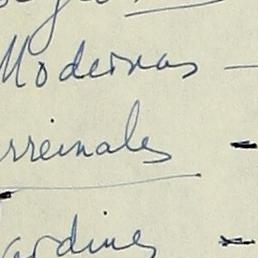 Modernas —
rreinales -
ardines -